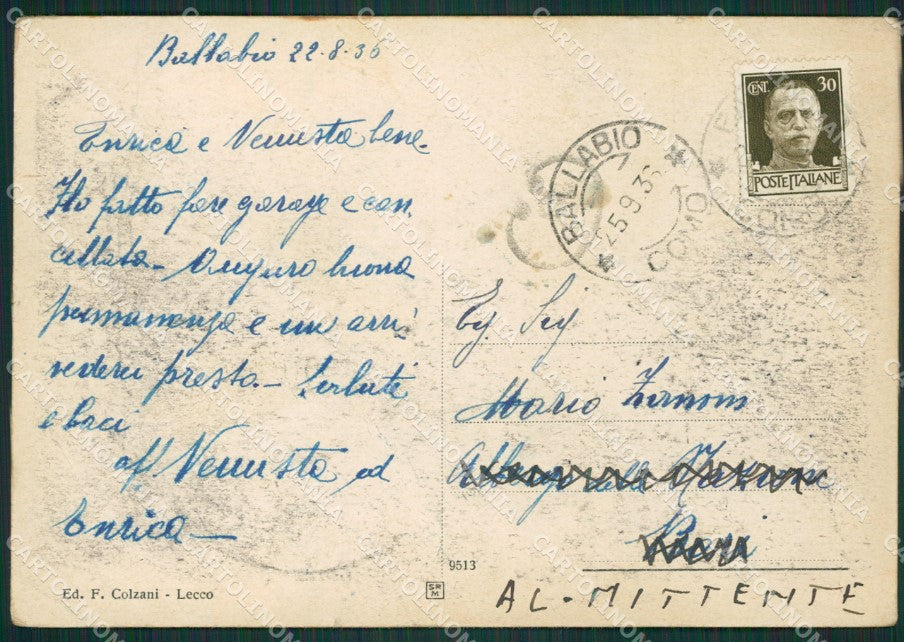 Ballabio 22-8-36
Enrica e Venusta bene.
Ho fatto fare garage e can
cellata - Auguro buona
permanenza e un arri
vederci presto. - Saluti
e baci
aff Venusta ed
Enrica -
CENT. 30
POSTE ITALIANE
BALLABIO
25.9.36
COMO
COMO
Eg. Sig
Mario
Albergo alla Stazione
Bari
AL-MITTENTE
9513
SR
M
Ed. F. Colzani - Lecco
CARTOLINOMANIA